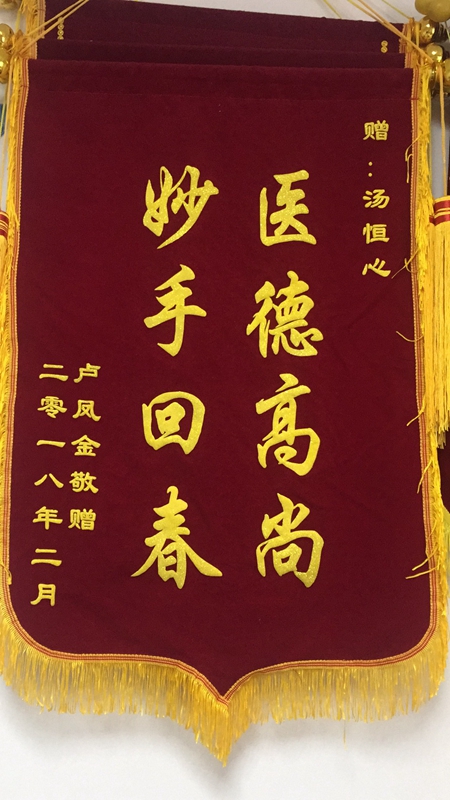 赠：汤恒心
医德高尚
妙手回春
卢凤金敬赠
二零一八年二月